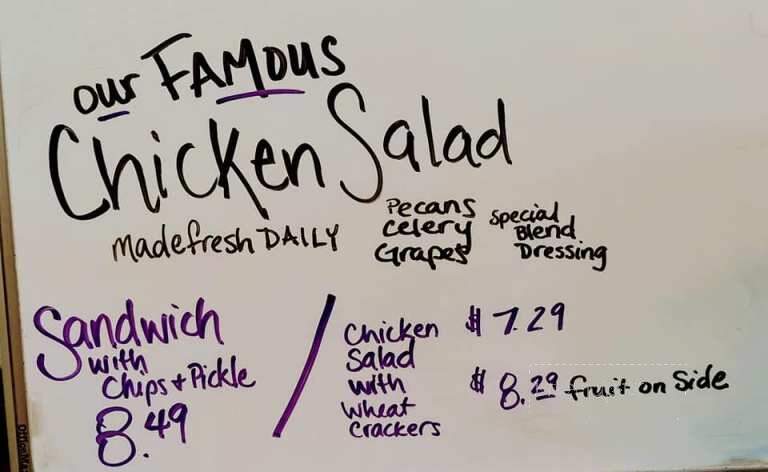 our FAMOUS
Chicken Salad
made fresh DAILY
Pecans
Celery
Grapes
Special
Blend
Dressing
Sandwich
with
Chips + Pickle
8.49
/
Chicken
Salad
with
wheat
crackers
$ 7.29
$ 8.29 fruit on Side